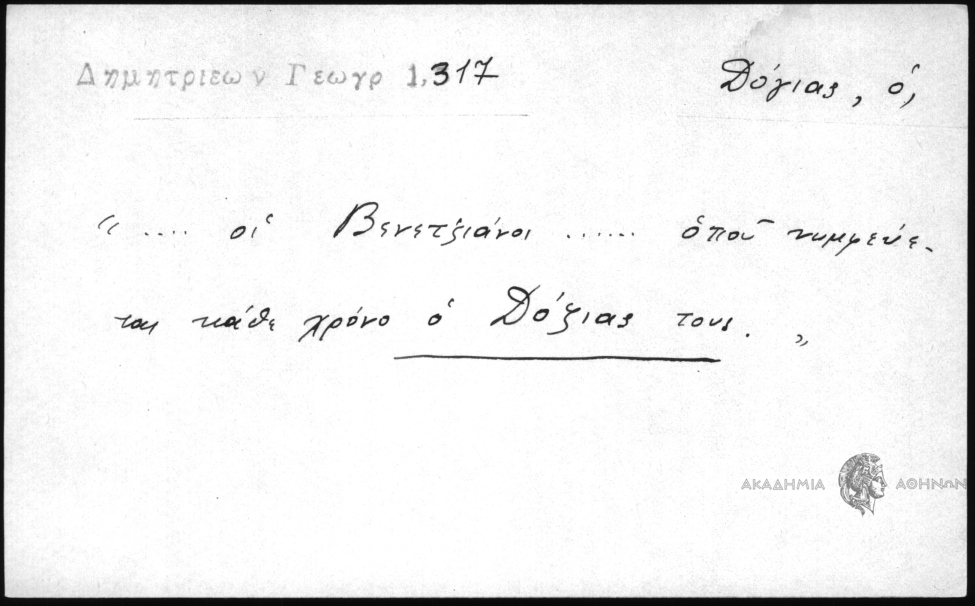 Δημητριεων Γεωγρ 1,317
Δόγιας, ὁ,
“ .... οἱ Βενετζιάνοι ...... ὁποῦ νυμφεύε-
ται κάθε χρόνο ὁ Δόζιας τους. „
ΑΚΑΔΗΜΙΑ ΑΘΗΝΩΝ